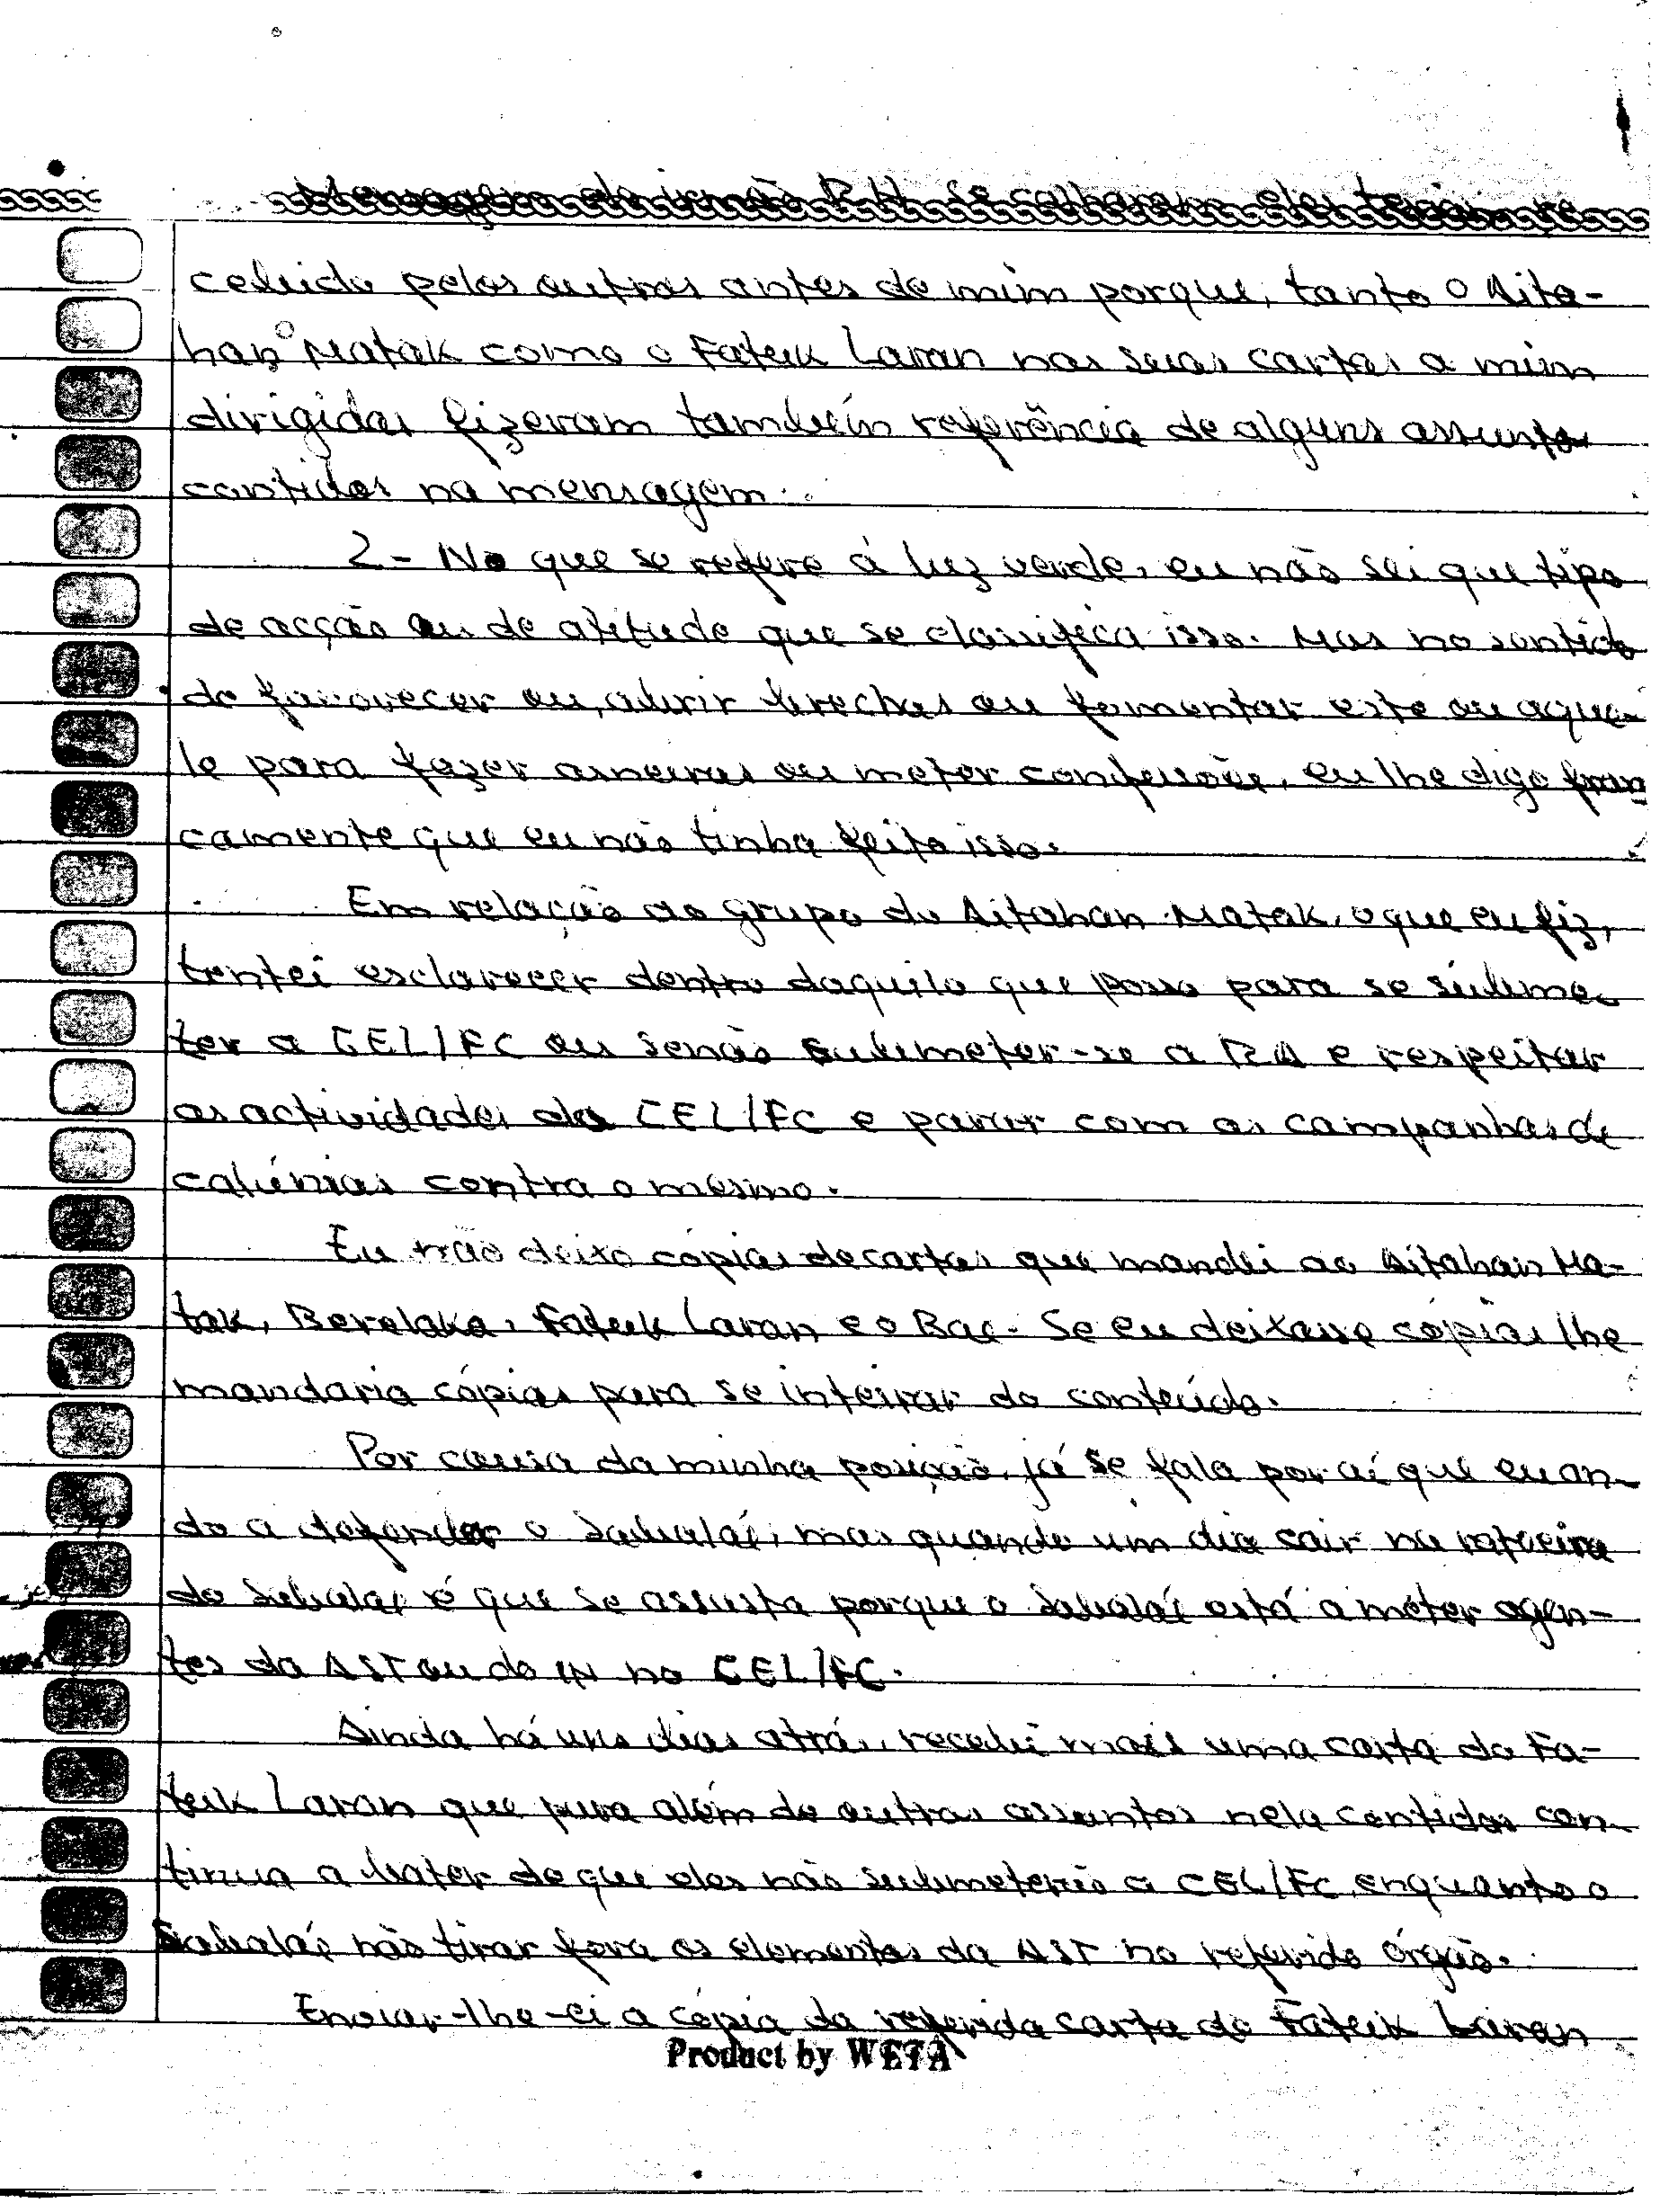 Mensagem do irmão R.H. Se calhar eles teriam re
cebido pelos outros antes de mim porque, tanto o Aita-
han Matak como o Fateik Laran nas suas cartas a mim
dirigidas fizeram também referência de alguns assuntos
contidos na mensagem.
2 - No que se refere à luz verde, eu não sei que tipo
de acção ou de atitude que se classifica isso. Mas no sentido
de favorecer ou, abrir brechas ou fomentar este ou aque-
le para fazer asneiras ou meter confusões, eu lhe digo fran
camente que eu não tinha feito isso.
Em relação ao grupo do Aitahan Matak, o que eu fiz,
tentei esclarecer dentro daquilo que posso para se subme-
ter a CEL/FC ou senão submeter-se a RA e respeitar
as actividades da CEL/FC e parar com as campanhas de
calúnias contra o mesmo.
Eu não deixo cópias de cartas que mandei ao Aitahan Ma-
tak, Berelaka, Fateik Laran e o Bac. Se eu deixasse cópias lhe
mandaria cópias para se inteirar do conteúdo.
Por causa da minha posição, já se fala por aí que eu an-
do a defender o Sabalaé, mas quando um dia cair na ratoeira
do Sabalae é que se assusta porque o Sabalaé está a meter agen-
tes da AST ou do IN no CEL/FC.
Ainda há uns dias atrás, recebi mais uma carta do Fa-
teik Laran que para além de outros assuntos nela contidos con-
tinua a bater de que eles não submeterão a CEL/FC, enquanto o
Sabalaé não tirar fora os elementos da AST no referido órgão.
Enviar-lhe-ei a cópia da referida carta do Fateik Laran
Product by WETA